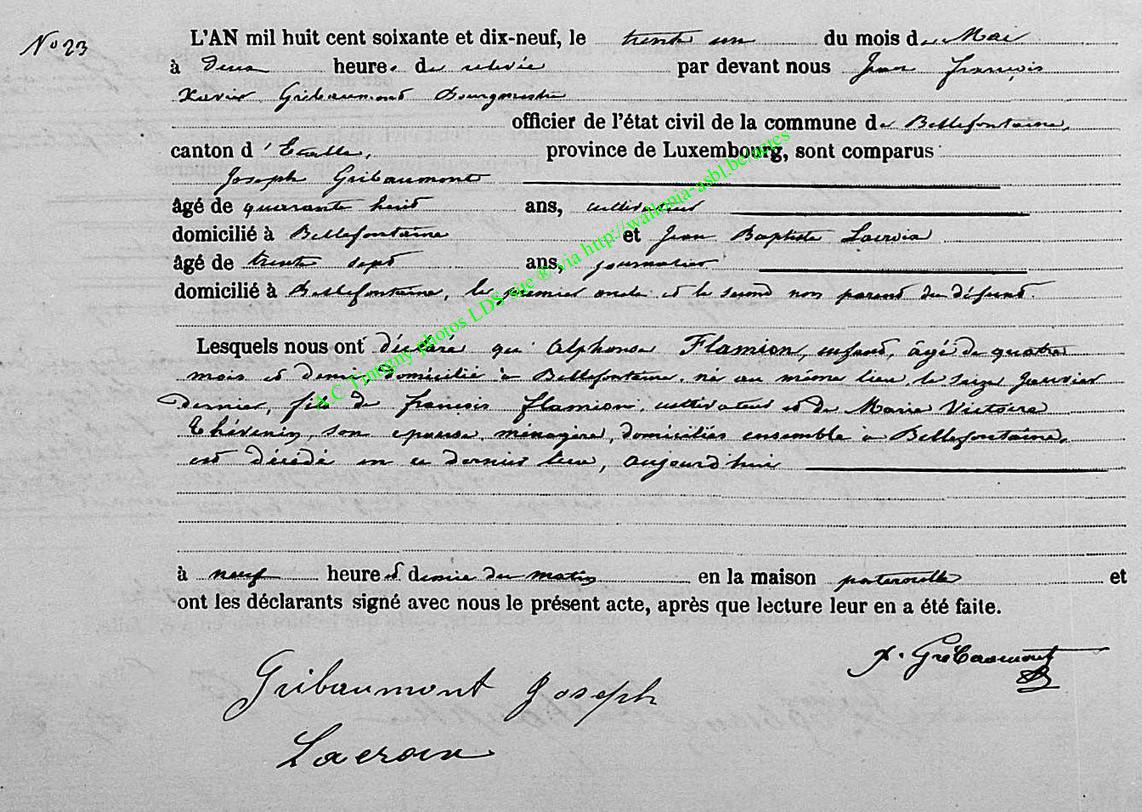 N° 23
L'AN mil huit cent soixante et dix-neuf, le trente un du mois de Mai
à deux heures de relevée par devant nous Jean François
Xavier Gribaumont Bourgmestre
officier de l'état civil de la commune de Bellefontaine,
canton d'Etalle, province de Luxembourg, sont comparus
Joseph Gribaumont
âgé de quarante huit ans, cultivateur
domicilié à Bellefontaine et Jean Baptiste Lacroix
âgé de trente sept ans, journalier
domicilié à Bellefontaine, le premier oncle et le second non parent du défunt.
Lesquels nous ont déclaré que Alphonse Flamion, enfant, âgé de quatre
mois et demi, domicilié à Bellefontaine, né au même lieu le seize Janvier
dernier, fils de François Flamion, cultivateur et de Marie Victoire
Thévenin, son épouse, ménagère, domiciliés ensemble à Bellefontaine,
est décédé en ce dernier lieu, aujourd'hui
à neuf heures et demie du matin en la maison paternelle et
ont les déclarants signé avec nous le présent acte, après que lecture leur en a été faite.
X. Gribaumont
Gribaumont Joseph
Lacroix
photos LDS site ® via http://wallonia-asbl.be/actes